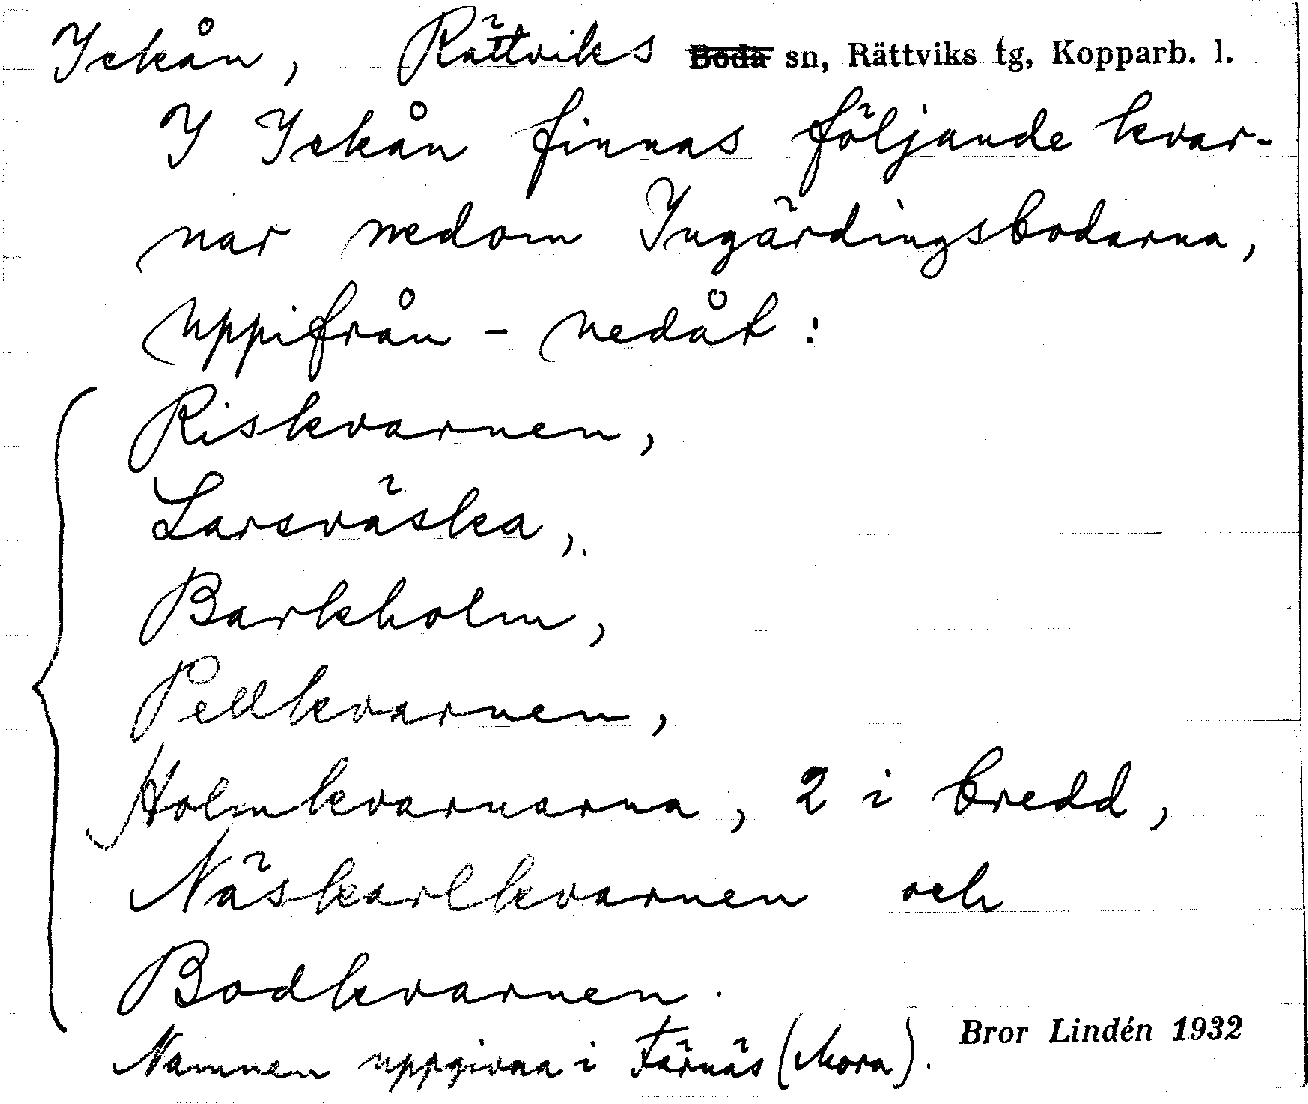 Ickån, Rättviks Boda sn, Rättviks tg, Kopparb. l.
I Ickån finnas följande kvar-
nar nedom Ingärdingsbodarna,
uppifrån - nedåt:
Riskvarnen,
Larsväska,
Barkholm,
Pellkvarnen,
Holmkvarnarna, 2 i bredd,
Näskarlkvarnen och
Bodkvarnen.
Namnen uppgivna i Färnäs (Mora).
Bror Lindén 1932